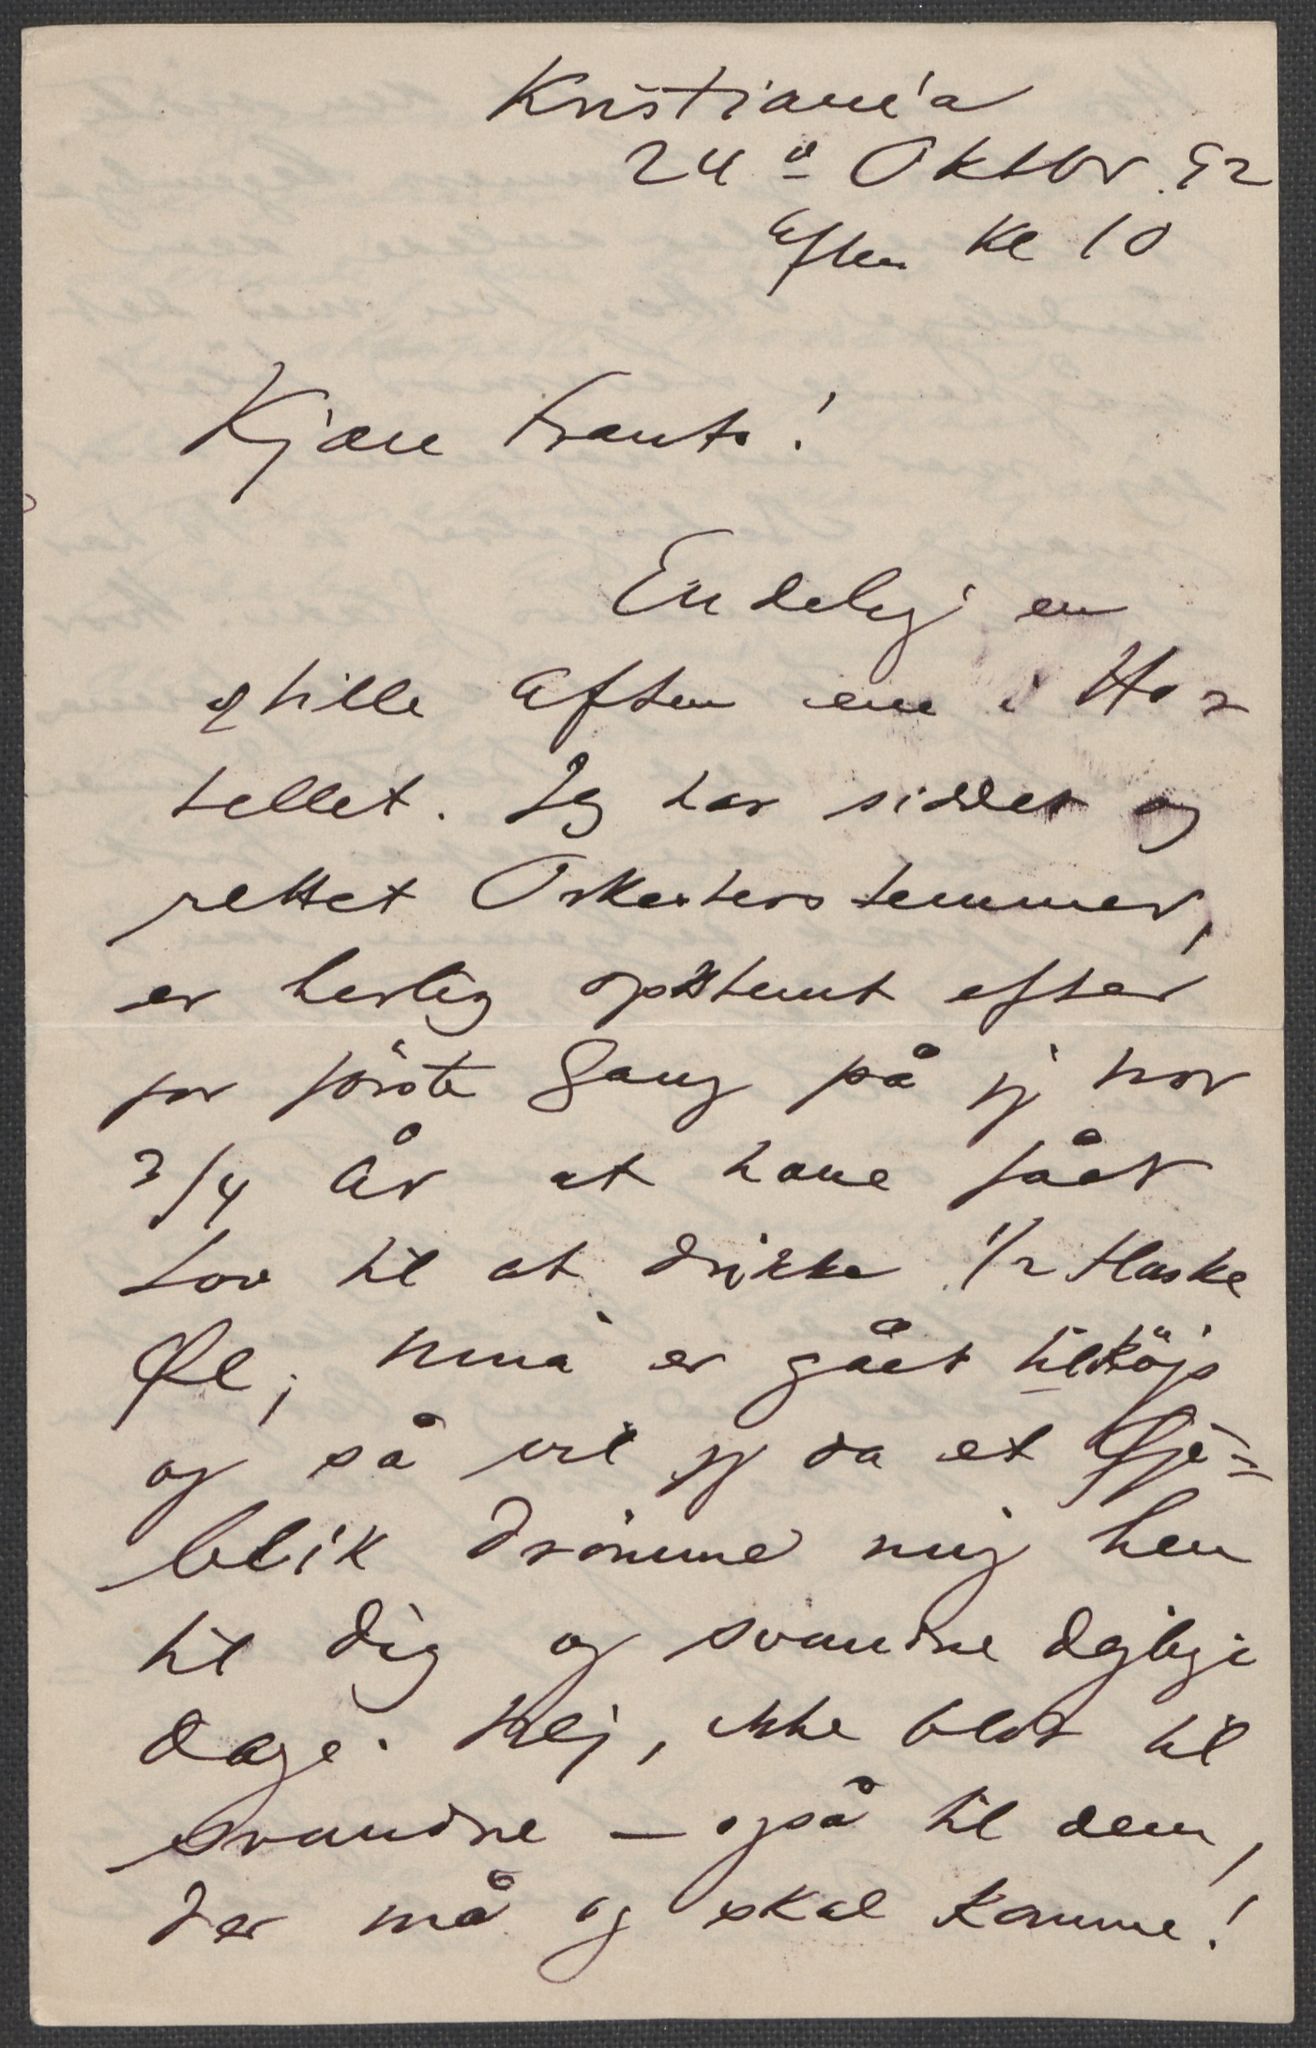 Kristiania
24de Oktbr. 92
Aften Kl 10
Kjære Frants!
Endelig en
stille Aften ene i Ho=
tellet. Jeg har siddet og
rettet Orkesterstemmer,
er herlig opstemt efter
for første Gang på jeg tror
3/4 År at have fået
Lov til at drikke 1/2 Flaske
Øl; Nina er gået tilköjs
og så vil jeg da et Øje=
blik drömme mig hen
til dig og svundne dejlige
Dage. Nej, ikke blot til
svundne – også til dem,
der må og skal komme!